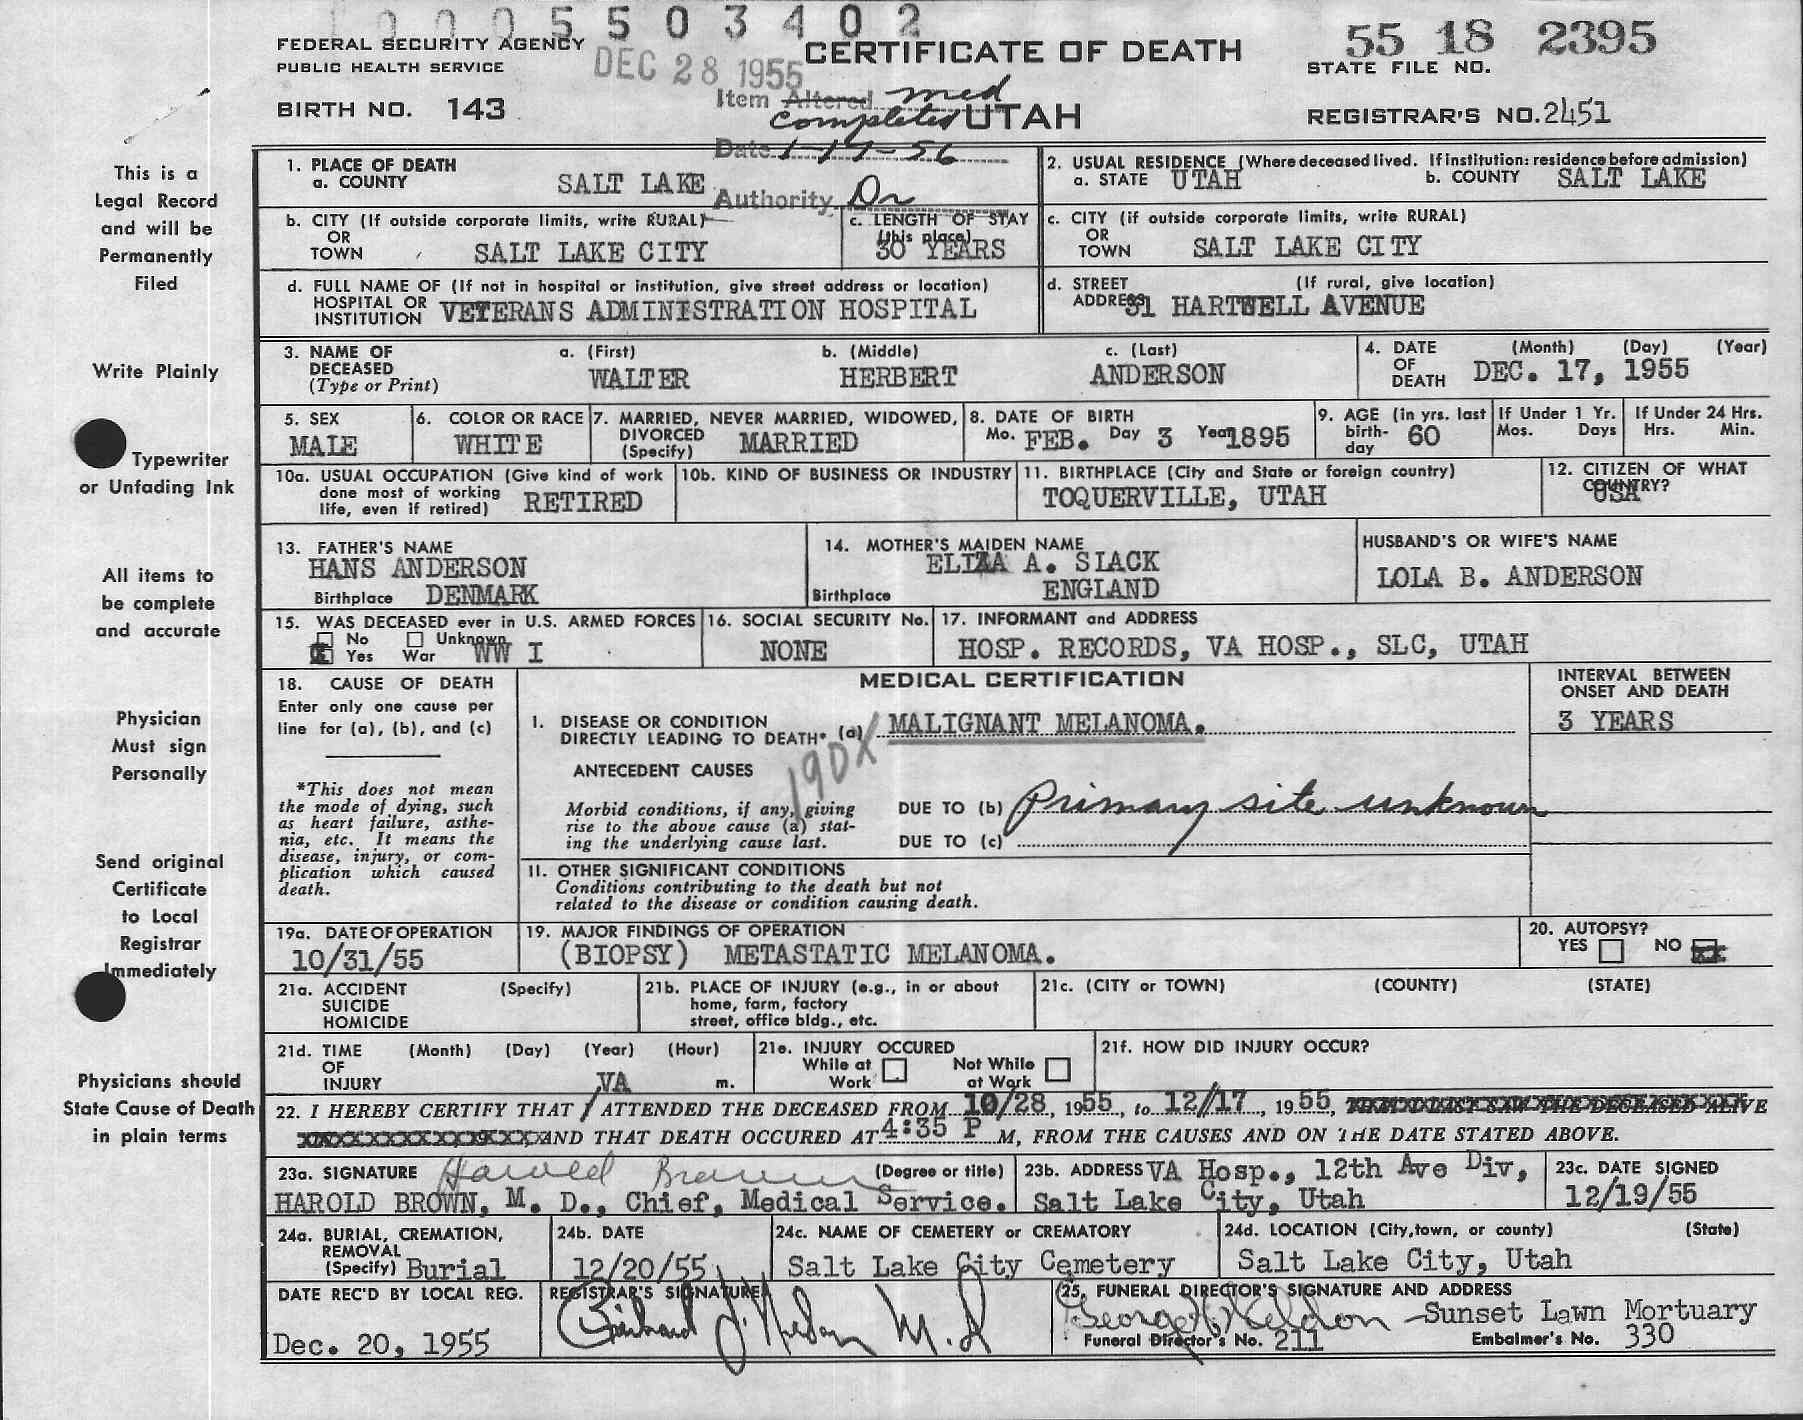 10005503402
FEDERAL SECURITY AGENCY
PUBLIC HEALTH SERVICE
DEC 28 1955
CERTIFICATE OF DEATH
55 18 2395
STATE FILE NO.
BIRTH NO. 143
Item Altered med
completed
UTAH
REGISTRAR'S NO. 2451
Date 1-17-56
Authority Dr
This is a
Legal Record
and will be
Permanently
Filed
Write Plainly
Typewriter
or Unfading Ink
All items to
be complete
and accurate
Physician
Must sign
Personally
Send original
Certificate
to Local
Registrar
Immediately
Physicians should
State Cause of Death
in plain terms
1. PLACE OF DEATH
a. COUNTY SALT LAKE
2. USUAL RESIDENCE (Where deceased lived. If institution: residence before admission)
a. STATE UTAH b. COUNTY SALT LAKE
b. CITY (If outside corporate limits, write RURAL)
OR
TOWN SALT LAKE CITY
c. LENGTH OF STAY
(this place)
30 YEARS
c. CITY (if outside corporate limits, write RURAL)
OR
TOWN SALT LAKE CITY
d. FULL NAME OF (If not in hospital or institution, give street address or location)
HOSPITAL OR
INSTITUTION VETERANS ADMINISTRATION HOSPITAL
d. STREET (If rural, give location)
ADDRESS 31 HARTWELL AVENUE
3. NAME OF a. (First) b. (Middle) c. (Last)
DECEASED
(Type or Print) WALTER HERBERT ANDERSON
4. DATE (Month) (Day) (Year)
OF
DEATH DEC. 17, 1955
5. SEX
MALE
6. COLOR OR RACE
WHITE
7. MARRIED, NEVER MARRIED, WIDOWED,
DIVORCED
(Specify) MARRIED
8. DATE OF BIRTH
Mo. FEB. Day 3 Year 1895
9. AGE (in yrs. last
birth-
day 60
If Under 1 Yr.
Mos. Days
If Under 24 Hrs.
Hrs. Min.
10a. USUAL OCCUPATION (Give kind of work
done most of working
life, even if retired) RETIRED
10b. KIND OF BUSINESS OR INDUSTRY
11. BIRTHPLACE (City and State or foreign country)
TOQUERVILLE, UTAH
12. CITIZEN OF WHAT
COUNTRY?
USA
13. FATHER'S NAME
HANS ANDERSON
Birthplace DENMARK
14. MOTHER'S MAIDEN NAME
ELIZA A. SLACK
Birthplace ENGLAND
HUSBAND'S OR WIFE'S NAME
LOLA B. ANDERSON
15. WAS DECEASED ever in U.S. ARMED FORCES
No Unknown
X Yes War WW I
16. SOCIAL SECURITY No.
NONE
17. INFORMANT and ADDRESS
HOSP. RECORDS, VA HOSP., SLC, UTAH
18. CAUSE OF DEATH
Enter only one cause per
line for (a), (b), and (c)
*This does not mean
the mode of dying, such
as heart failure, asthe-
nia, etc. It means the
disease, injury, or com-
plication which caused
death.
MEDICAL CERTIFICATION
INTERVAL BETWEEN
ONSET AND DEATH
I. DISEASE OR CONDITION
DIRECTLY LEADING TO DEATH* (a) MALIGNANT MELANOMA.
3 YEARS
190X
ANTECEDENT CAUSES
Morbid conditions, if any, giving
rise to the above cause (a) stat-
ing the underlying cause last.
DUE TO (b) Primary site unknown
DUE TO (c)
II. OTHER SIGNIFICANT CONDITIONS
Conditions contributing to the death but not
related to the disease or condition causing death.
19a. DATE OF OPERATION
10/31/55
19. MAJOR FINDINGS OF OPERATION
(BIOPSY) METASTATIC MELANOMA.
20. AUTOPSY?
YES NO XX
21a. ACCIDENT (Specify)
SUICIDE
HOMICIDE
21b. PLACE OF INJURY (e.g., in or about
home, farm, factory
street, office bldg., etc.
21c. (CITY or TOWN) (COUNTY) (STATE)
21d. TIME (Month) (Day) (Year) (Hour)
OF
INJURY m.
VA
21e. INJURY OCCURED
While at Work
Not While at Work
21f. HOW DID INJURY OCCUR?
22. I HEREBY CERTIFY THAT / ATTENDED THE DECEASED FROM 10/28, 1955, to 12/17, 1955, THAT I LAST SAW THE DECEASED ALIVE
AND THAT DEATH OCCURED AT 4:35 P M, FROM THE CAUSES AND ON THE DATE STATED ABOVE.
23a. SIGNATURE Harold Brown (Degree or title)
HAROLD BROWN, M. D., Chief, Medical Service.
23b. ADDRESS VA Hosp., 12th Ave Div,
Salt Lake City, Utah
23c. DATE SIGNED
12/19/55
24a. BURIAL, CREMATION,
REMOVAL
(Specify) Burial
24b. DATE
12/20/55
24c. NAME OF CEMETERY or CREMATORY
Salt Lake City Cemetery
24d. LOCATION (City, town, or county) (State)
Salt Lake City, Utah
DATE REC'D BY LOCAL REG.
Dec. 20, 1955
REGISTRAR'S SIGNATURE
M.D.
25. FUNERAL DIRECTOR'S SIGNATURE AND ADDRESS
George Seldon Sunset Lawn Mortuary
Funeral Director's No. 211 Embalmer's No. 330